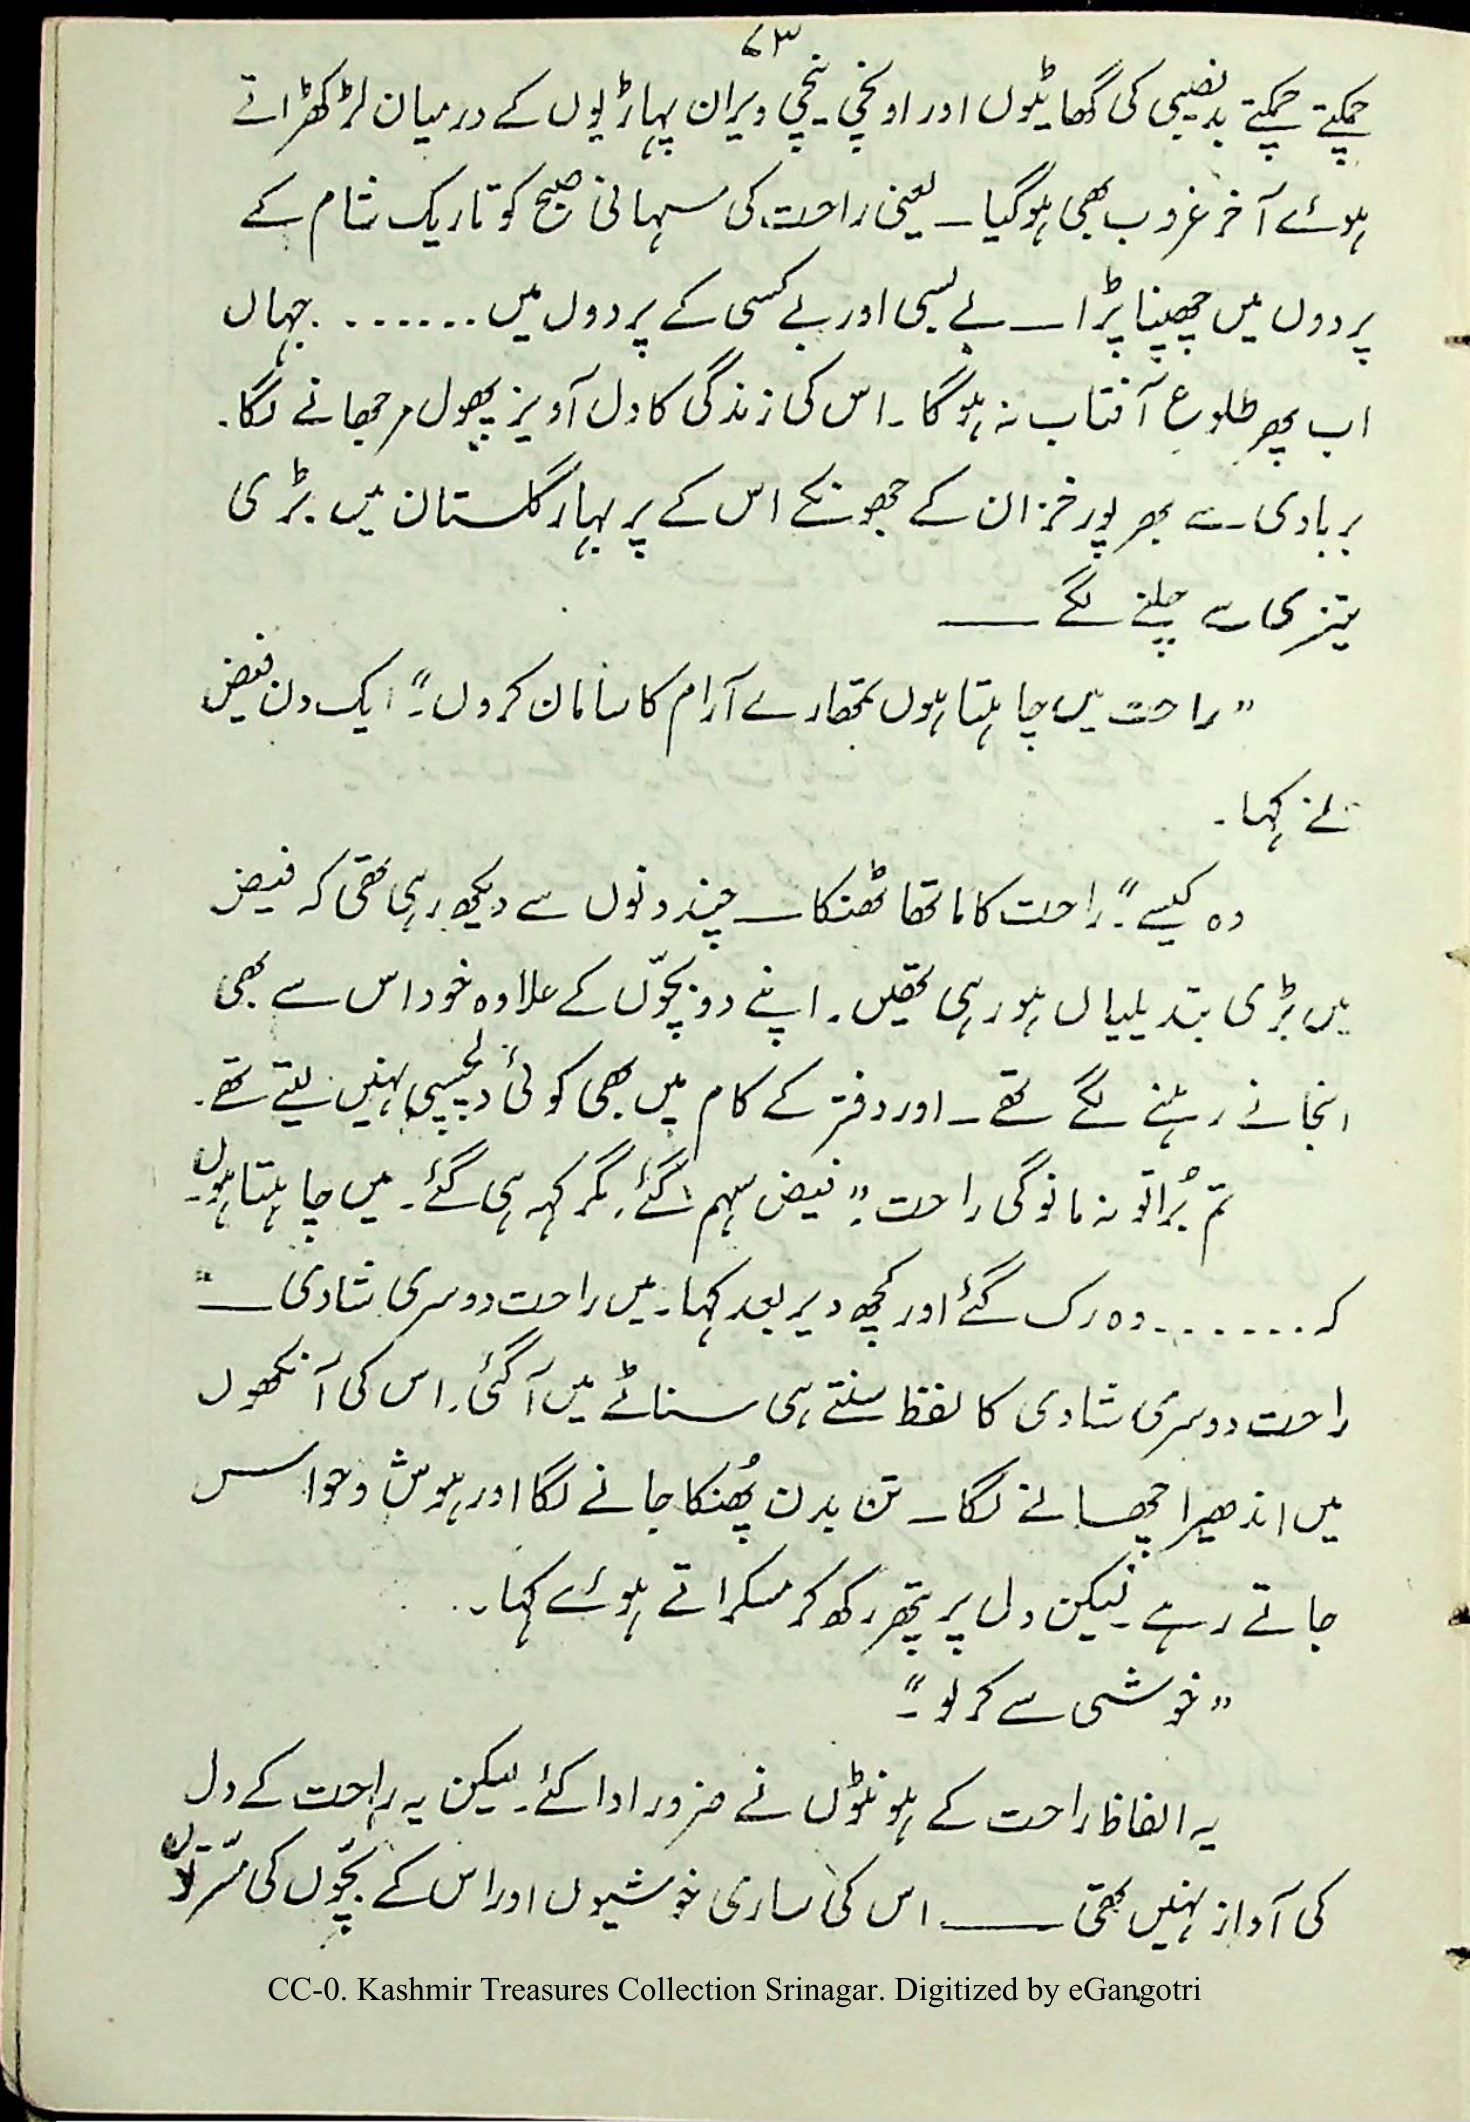 ۷۳
چمکتے چمکتے بدنصیبی کی گھاٹیوں اور اونچی نیچی ویران پہاڑیوں کے درمیان لڑکھڑاتے
ہوئے آخر غروب بھی ہوگیا۔ یعنی راحت کی سہانی صبح کو تاریک شام کے
پردوں میں چھپنا پڑا۔ بے بسی اور بے کسی کے پردوں میں ....... جہاں
اب پھر طلوع آفتاب نہ ہوگا۔ اس کی زندگی کا دل آویز پھول مرجھانے لگا۔
بربادی سے بھرپور خزاں کے جھونکے اس کے پربہار گلستان میں بڑی
تیزی سے چلنے لگے ——
"راحت میں چاہتا ہوں تمھارے آرام کا سامان کروں۔" ایک دن فیض
نے کہا۔
وہ کیسے"۔ راحت کا ماتھا ٹھنکا۔ چند دنوں سے دیکھ رہی تھی کہ فیض
میں بڑی تبدیلیاں ہو رہی تھیں۔ اپنے دو بچّوں کے علاوہ خود اس سے بھی
انجانے رہنے لگے تھے۔ اور دفتر کے کام میں بھی کوئی دلچسپی نہیں لیتے تھے۔
تم بُرا تو نہ مانوگی راحت"۔ فیض سہم گئے، مگر کہہ ہی گئے۔ میں چاہتا ہوں۔
کہ ....... وہ رک گئے اور کچھ دیر بعد کہا۔ میں راحت دوسری شادی ــ"
راحت دوسری شادی کا لفظ سنتے ہی سناٹے میں آگئی۔ اس کی آنکھوں
میں اندھیرا چھانے لگا۔ تن بدن پُھنکا جانے لگا اور ہوش و حواس
جاتے رہے۔ لیکن دل پر پتھر رکھ کر مسکراتے ہوئے کہا۔
"خوشی سے کرلو۔"
یہ الفاظ راحت کے ہونٹوں نے ضرور ادا کئے۔ لیکن یہ راحت کے دل
کی آواز نہیں تھی —— اس کی ساری خوشیوں اور اس کے بچّوں کی مسّرتوں
CC-0. Kashmir Treasures Collection Srinagar. Digitized by eGangotri